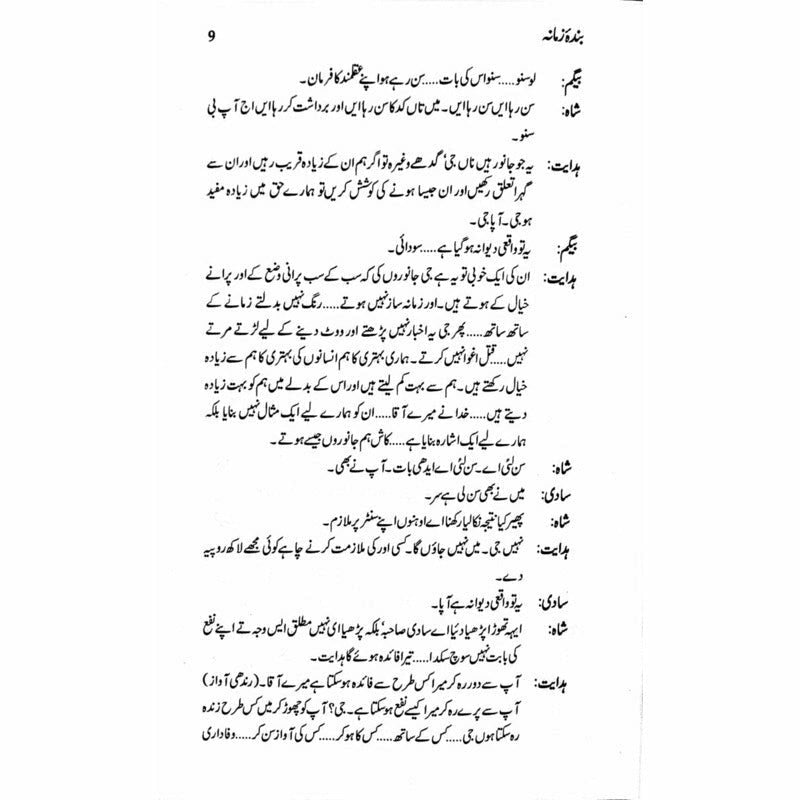 بندۂ زمانہ
9
بیگم: لو سنو.....سنو اس کی بات.....سن رہے ہو اپنے عقلمند کا فرمان۔
شاہ: سن رہا ایں سن رہا ایں۔ میں تاں کد کا سن رہا ایں اور برداشت کر رہا ایں اج آپ بی
سنو۔
ہدایت: یہ جو جانور ہیں ناں جی، گدھے وغیرہ تو اگر ہم ان کے زیادہ قریب رہیں اور ان سے
گہرا تعلق رکھیں اور ان جیسا ہونے کی کوشش کریں تو ہمارے حق میں زیادہ مفید
ہو جی۔ آپا جی۔
بیگم: یہ تو واقعی دیوانہ ہو گیا ہے.....سودائی۔
ہدایت: ان کی ایک خوبی تو یہ ہے جی جانوروں کی کہ سب کے سب پرانی وضع کے اور پرانے
خیال کے ہوتے ہیں۔ اور زمانہ ساز نہیں ہوتے.....رنگ نہیں بدلتے زمانے کے
ساتھ ساتھ.....پھر جی یہ اخبار نہیں پڑھتے اور ووٹ دینے کے لیے لڑتے مرتے
نہیں.....قتل اغوا نہیں کرتے۔ ہماری بہتری کا ہم انسانوں کی بہتری کا ہم سے زیادہ
خیال رکھتے ہیں۔ ہم سے بہت کم لیتے ہیں اور اس کے بدلے میں ہم کو بہت زیادہ
دیتے ہیں.....خدا نے میرے آقا.....ان کو ہمارے لیے ایک مثال نہیں بنایا بلکہ
ہمارے لیے ایک اشارہ بنایا ہے.....کاش ہم جانوروں جیسے ہوتے۔
شاہ: سن لئی اے۔ سن لئی اے ایدھی بات۔ آپ نے بھی۔
سادی: میں نے بھی سن لی ہے سر۔
شاہ: پھیر کیا نتیجہ نکالیا رکھنا اے اوہنوں اپنے سنٹر پر ملازم۔
ہدایت: نہیں جی۔ میں نہیں جاؤں گا۔ کسی اور کی ملازمت کرنے چاہے کوئی مجھے لاکھ روپیہ
دے۔
سادی: یہ تو واقعی دیوانہ ہے آپا۔
شاہ: ایہہ تھوڑا پڑھیا دئیا اے سادی صاحبہ، بلکہ پڑھیا ای نہیں مطلق ایس وجہ تے اپنے نفع
کی بابت نہیں سوچ سکدا.....تیرا فائدہ ہوئے گا ہدایت۔
ہدایت: آپ سے دور رہ کر میرا کس طرح سے فائدہ ہو سکتا ہے میرے آقا۔ (رندھی آواز)
آپ سے پرے رہ کر میرا کیسے نفع ہو سکتا ہے۔ جی؟ آپ کو چھوڑ کر میں کس طرح زندہ
رہ سکتا ہوں جی.....کس کے ساتھ.....کس کا ہو کر.....کس کی آواز سن کر.....وفاداری